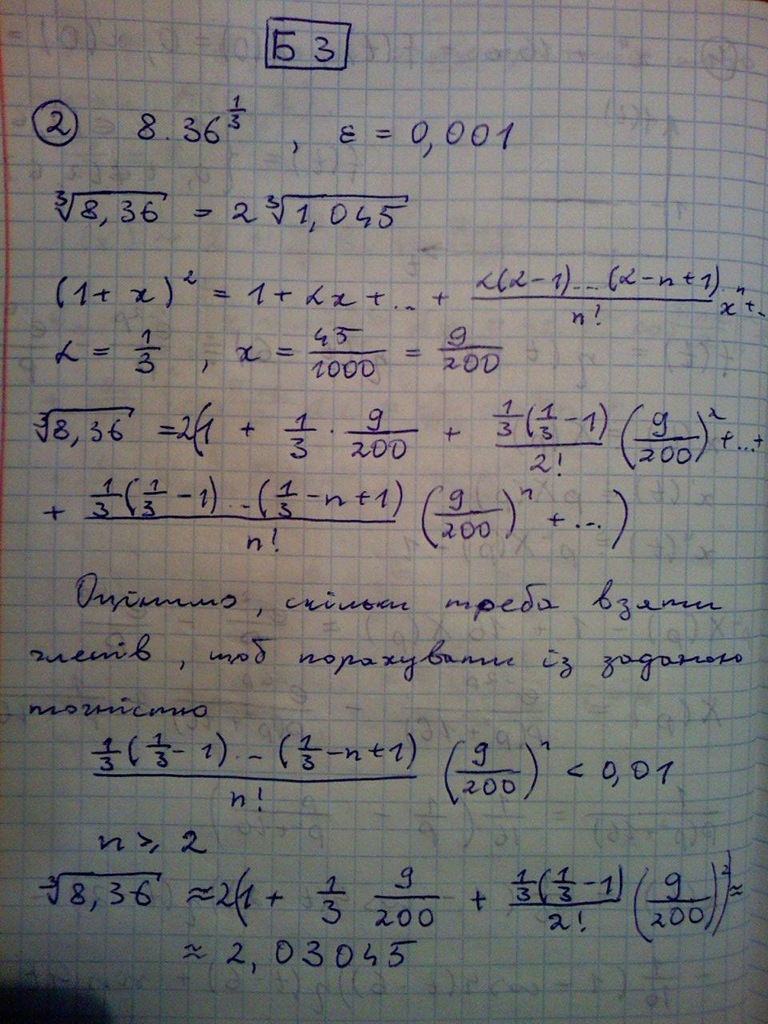 Б 3
② 8.36^{1/3} , ε = 0,001
∛8,36 = 2∛1,045
(1+x)^α = 1+αx+...+ α(α-1)...(α-n+1)/n! x^n+..
α = 1/3 , x = 45/1000 = 9/200
∛8,36 =2(1 + 1/3 · 9/200 + 1/3(1/3-1)/2! (9/200)^2+...+
+ 1/3(1/3-1)...(1/3-n+1)/n! (9/200)^n +...)
Оцінимо, скільки треба взяти
членів, щоб порахувати із заданою
точністю
1/3(1/3-1)...(1/3-n+1)/n! (9/200)^n < 0,01
n ≥ 2
∛8,36 ≈2(1+ 1/3 9/200 + 1/3(1/3-1)/2! (9/200)^2)≈
≈ 2,03045